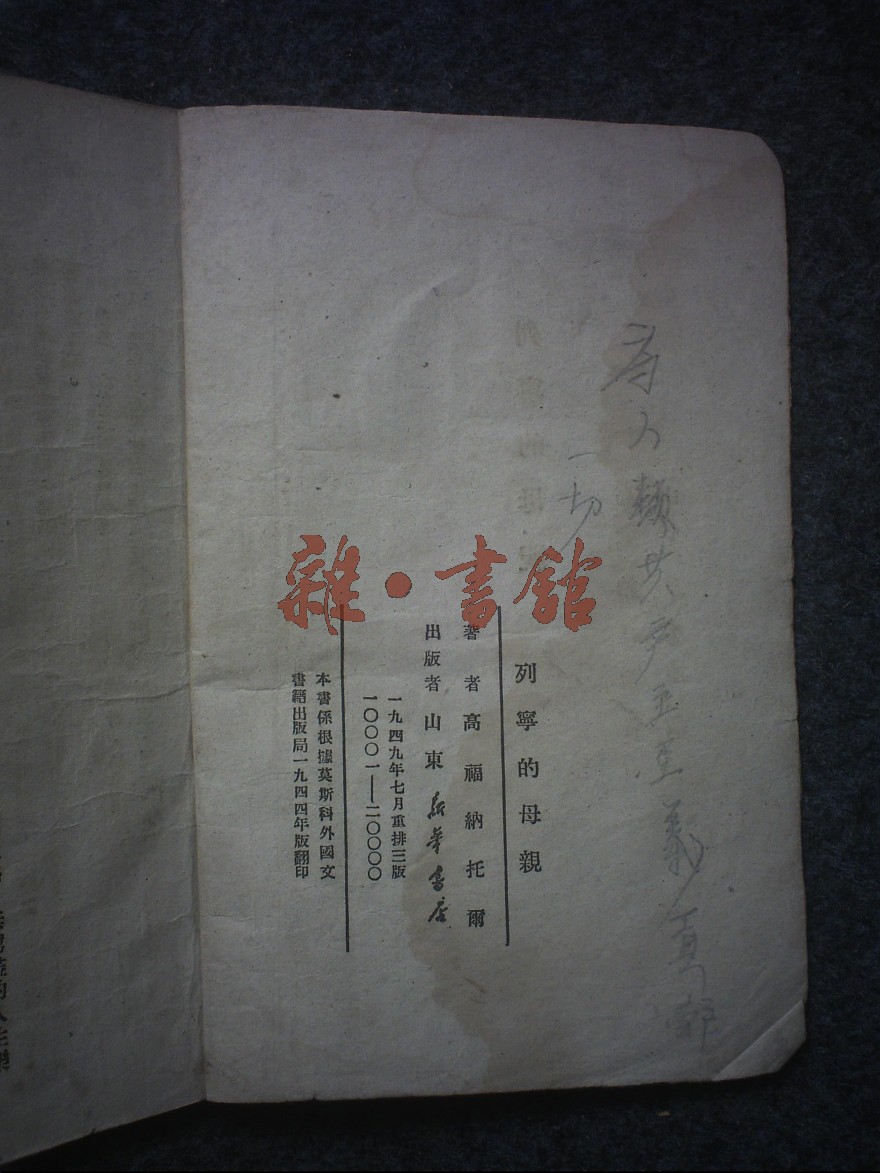 為人類共产主义
一切
列寧的母親
著者 高福納托爾
出版者 山東新華書店
一九四九年七月重排三版
一〇〇〇一——二〇〇〇〇
本書係根據莫斯科外國文
書籍出版局一九四四年版翻印
雜·書館
列寧的母親